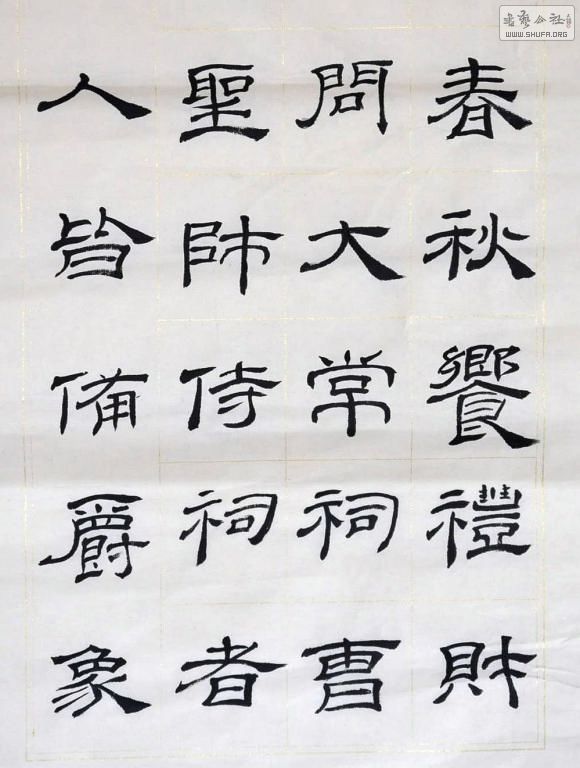 春秋饗禮財
問大常祠曹
聖師侍祠者
人皆備爵象
書藝公社
WWW.SHUFA.ORG